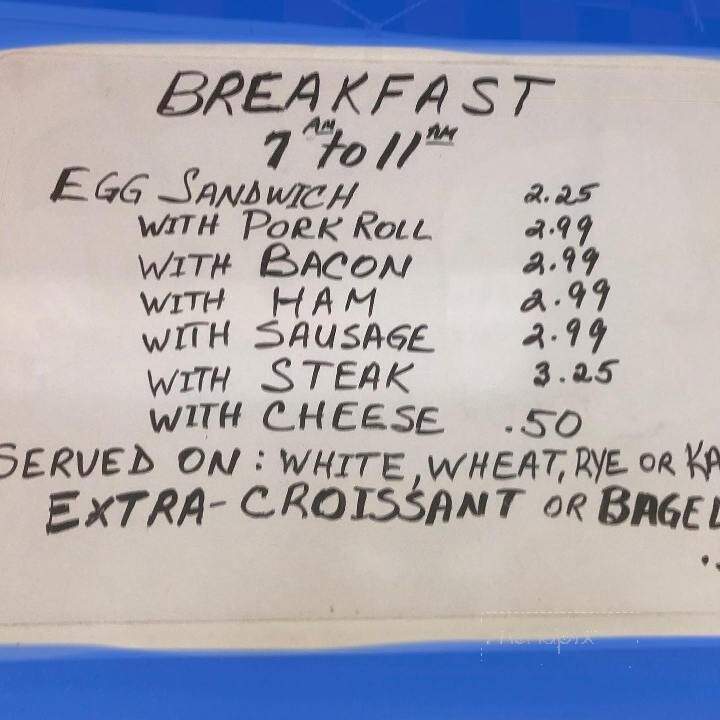 BREAKFAST
7 AM to 11 AM
EGG SANDWICH 2.25
WITH PORK ROLL 2.99
WITH BACON 2.99
WITH HAM 2.99
WITH SAUSAGE 2.99
WITH STEAK 3.25
WITH CHEESE .50
SERVED ON: WHITE, WHEAT, RYE OR KA
EXTRA- CROISSANT OR BAGEL